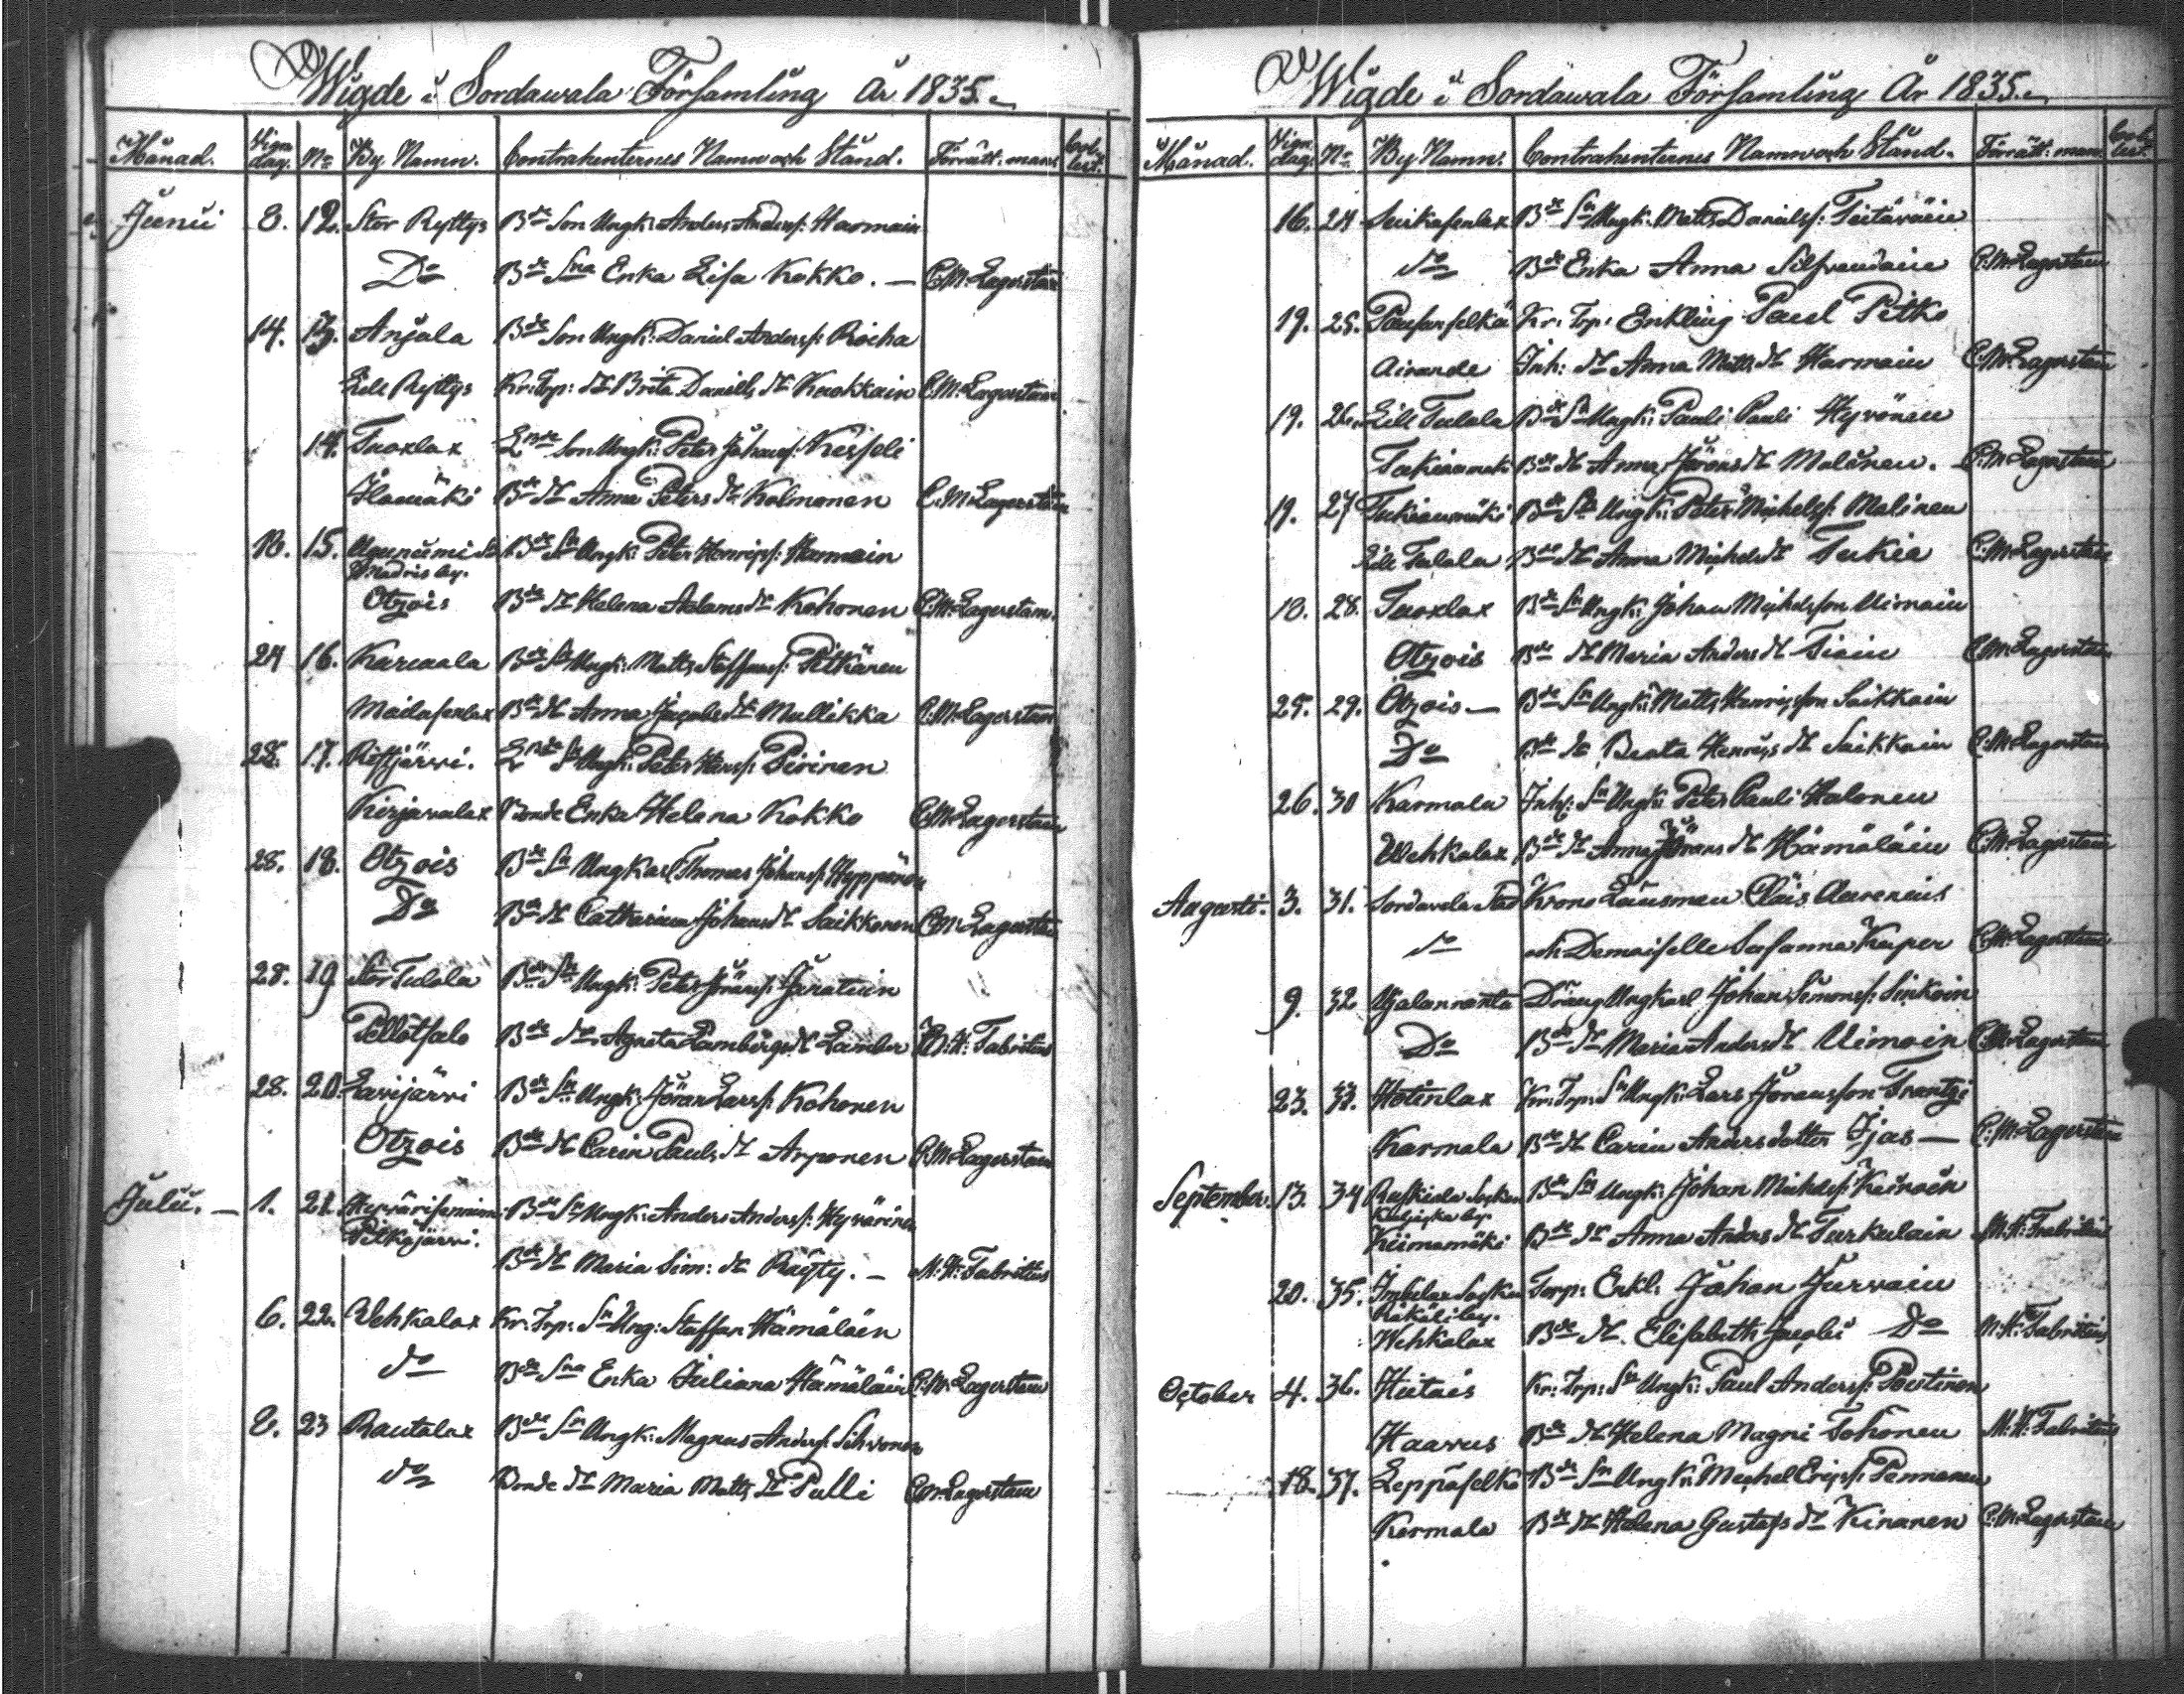 Wigde i Sordawala Församling År 1835.
Månad. Vign. dag. No By Namn. Contrahenternes Namn och Stånd. Förrätt: man. Coll: lect.
Junii 8. 12. Stor Ryttys Bde Son Ungk: Anders Anderss: Harmain
Do Bde Sna Enka Lisa Kokko. — C.M. Lagerstam
14. 13. Anjala Bde Son Ungk: Daniel Anderss: Rocha
Lill Ryttys Kr: Trp: dr Brita Daniels dr Kaokkain C.M. Lagerstam
14. Tuoxlax Lnde Son Ungk: Peter Johanss: Kesseli
Ilamäki Bde dr Anna Peters dr Kolmonen C.M. Lagerstam
18. 15. Bde Sn Ungk: Peter Henrikss: Harmain
by.
Otzois Bde dr Helena Adams dr Kohonen C.M. Lagerstam.
24 16. Karmala Bde Sn Ungk: Matts Staffanss: Pitkänen
Mailasenlax Bde dr Anna Jacobs dr Mullikka C.M. Lagerstam
28. 17. Ristjärvi. Lnde Sn Ungk: Peter Hanss: Piirinen
Kirjavalax Bonde Enka Helena Kokko C.M. Lagerstam
28. 18. Otzois Bde Sn Ungkarl Thomas Johanss: Heppönen
Do Bde dr Catharina Johans dr Saikkonen C.M. Lagerstam
28. 19 Stor Tulola Bde Sn Ungk: Peter Jöranss: Jäntuin
Pellotsalo Bde dr Agneta Lambergs dr Lamber M.H. Fabritius
28. 20. Lavijärvi Bde Sn Ungk: Jöran Larss: Kohonen
Otzois Bde dr Carin Pauls dr Arponen C.M. Lagerstam
Julii. — 1. 21. Bde Sn Ungk: Anders Anderss: Hyvärinen
Pitkäjärvi.
Bde dr Maria Sim: dr Räyty. — M.H. Fabritius
6. 22. Wehkalax Kr: Trp: Sn Ung: Staffan Hämäläin
do Bde Sna Enka Juliana Hämäläin C.M. Lagerstam
8. 23 Rautalax Bde Sn Ungk: Magnus Anderss: Sihvonen
do Bonde dr Maria Matts dr Pulli C.M. Lagerstam
Wigde i Sordawala Församling År 1835.
Månad. Vign. dag. No By Namn. Contrahenternes Namn och Stånd. Förrätt: man. Coll: lect.
16. 24 Suikasenlax Bde Sn Ungk: Matts Danielss: Teitäväin
do Bde Enka Anna Silfvendain C.M. Lagerstam
19. 25. Pausanselkä Kr: Trp: Enkling Paul Pitko
Airanne Inh: dr Anna Matts dr Harmain C.M. Lagerstam
19. 26. Lill Tulola Bde Sn Ungk: Pauli Pauli Hyvönen
Tukiamäki Bde dr Anna Jörans dr Malinen. C.M. Lagerstam
19. 27 Tukiamäki Bde Sn Ungk: Peter Michelss: Malinen
Lill Tulola Bde dr Anna Michels dr Tukia C.M. Lagerstam
18. 28. Tuoxlax Bde Sn Ungk: Johan Michelsson Uimain
Otzois Bde dr Maria Anders dr Tiain C.M. Lagerstam
25. 29. Otzois — Bde Sn Ungk: Matts Henricsson Saikkain
Do Bde dr Beata Henrics dr Saikkain C.M. Lagerstam
26. 30 Karmala Inh: Sn Ungk: Peter Pauli Halonen
Wehkalax Bde dr Anna Jörans dr Hämäläin C.M. Lagerstam
Augusti. 3. 31. Sordavala Stad Krono Länsman Claës Aurenius
do och Demoiselle Susanna Kuper C.M. Lagerstam
9. 32 Yjalanranta Dräng Ungkarl Johan Simonss: Sinkoin
Do Bde dr Maria Anders dr Uimoin C.M. Lagerstam
23. 33. Hotinlax Kr: Trp: Sn Ungk: Lars Joransson Frantzi
Karmala Bde dr Carin Anders dotter Ijas — C.M. Lagerstam
September. 13. 34 Ruskiala Socken Bde Sn Ungk: Johan Michelss: Keinoin
by.
Kiimamäki Bde dr Anna Anders dr Turkulain M.H. Fabritius
20. 35. Imbilax Socken Torp: Enkl: Johan Jurvain
Räkäli by.
Wehkalax Bde dr. Elisabeth Jacobs Do M.H. Fabritius
October 4. 36. Hiitais Kr: Trp: Sn Ungk: Paul Anderss: Poutinen
Haavus Bde dr Helena Magni Tohonen M.H. Fabritius
18. 37. Leppäselkä Bde Sn Ungk: Michel Ericss: Pennanen
Kermala Bde dr Helena Gustafs dr Kinanen C.M. Lagerstam